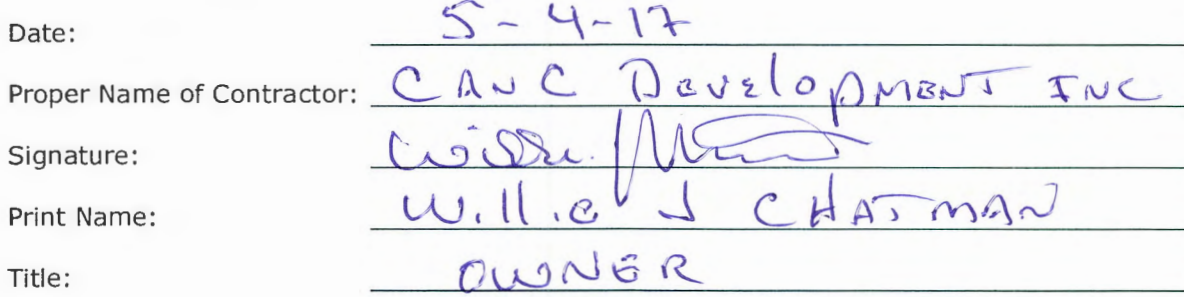 Date: 5-4-17
Proper Name of Contractor: CANC Development INC
Signature: Willie
Print Name: Willie J CHATMAN
Title: OWNER